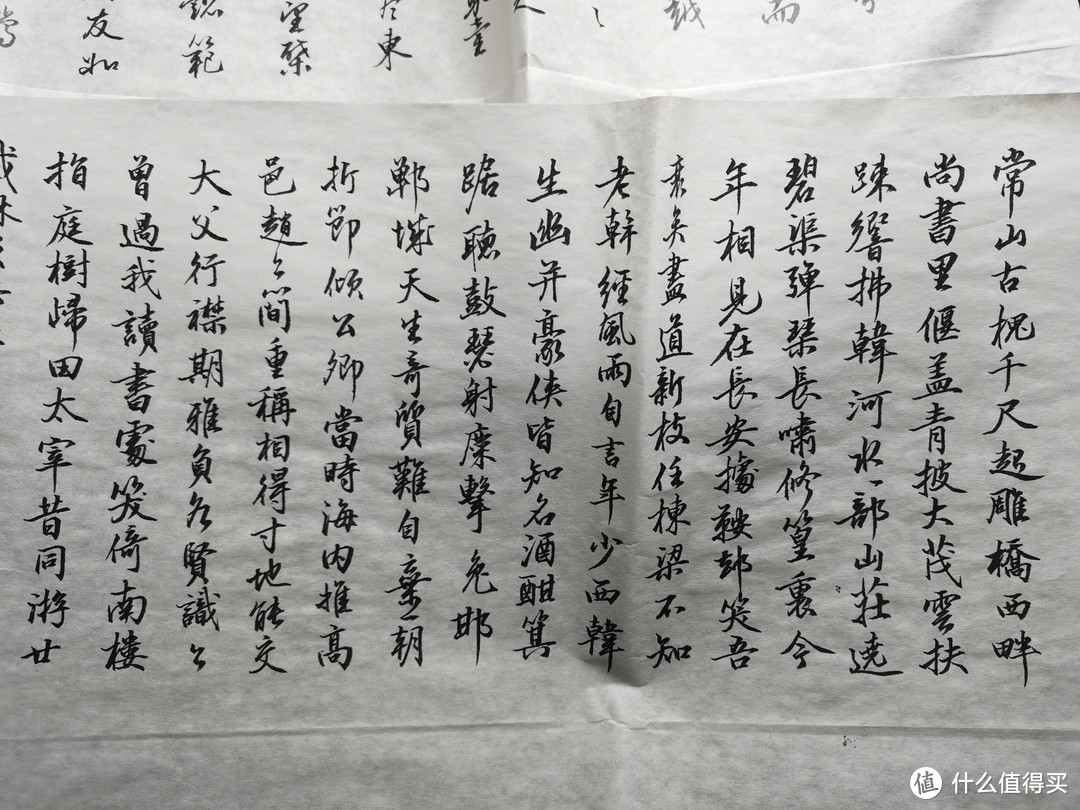 而
越
堂
東
範
友如
常山古槐千尺起雕橋西畔
尚書里偃盖青披大茂雲扶
踈響拂韓河水一部山莊遶
碧渠弹琴長嘯修篁裏今
年相見在長安據鞍却笑吾
衰矣盡道新枝任棟梁不知
老幹經風雨自言年少西韓
生幽并豪侠皆知名酒酣箕
踞聽鼓瑟射麋擊兔邯
鄲城天生奇質難自棄一朝
折節傾公卿當時海内推高
邑趙公簡重稱相得寸地能交
大父行襟期雅負名賢識公
曾過我讀書處笑倚南樓
指庭樹歸田太宰昔同游廿
值 什么值得买